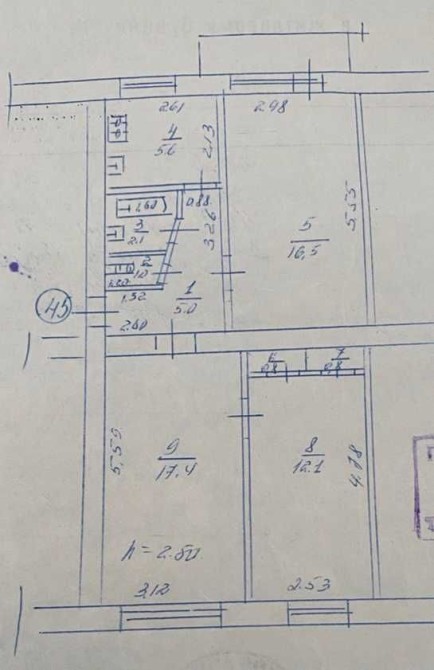 2.61
2.98
4
5.6
2.13
1.60
0.88
3
2.1
3.26
5
16,5
5.55
2
1.0
1.32
1
5.0
45
2.60
6
0,8
7
0,8
5,59
9
17.4
8
12.1
4.78
h = 2.50
3,12
2.53